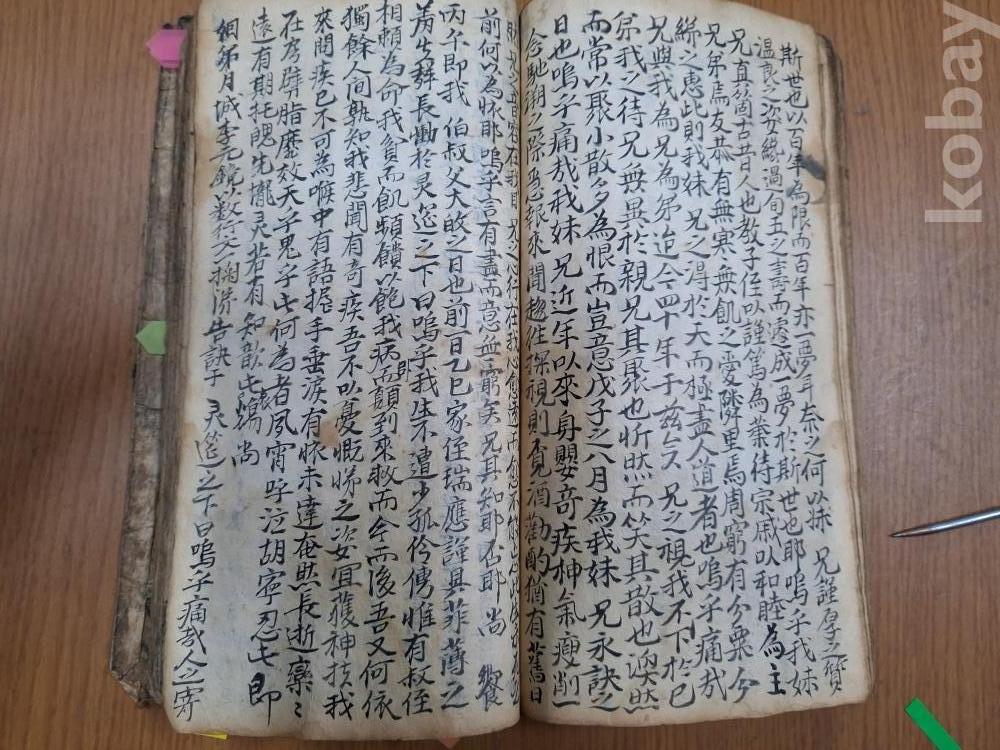 斯世也以百年為限而百年亦一夢耳奈之何以妹 兄謹厚之質
温良之姿纔過旬五之壽而遽成一夢於斯世也耶嗚乎我妹
兄真箇古昔人也教子侄以謹篤為業待宗戚以和睦為主
兄弟焉友恭有無寒無飢之愛隣里焉周窮有分粟分
絲之惠比則我妹 兄之得於天而極盡人道者也嗚乎痛哉
兄與我為兄為弟迨今四十年于兹矣 兄之視我不下於已
弟我之待兄無異於親兄其聚也忻然而笑其散也渙然
而常以聚小散多為恨而豈意戊子之六月為我妹 兄永訣之
日也嗚乎痛哉我妹 兄近年以來身嬰奇疾神氣瘦削
今馳潮之際忽報來聞趨往探視則覓酒勸酌猶有舊日
前何以為懷耶嗚乎言有盡而意無窮矣兄其知耶否耶 尚 饗
丙子即我 伯叔父大故之日也前一日乙巳家侄瑞應謹具菲薄之
羞失聲長慟於灵筵之下曰嗚乎我生不遭少孤伶俜惟有叔侄
相賴為命我貧而飢頻饋以飽我病而即顛到來救而今而後吾又何依
獨餘人間孰知我悲聞有奇疾吾不以憂慨悌之姿宜獲神扶我
來問疾已不可為喉中有語握手垂淚有懷未達奄然長逝欒欒
在房擗脂靡效天乎鬼乎此何為者夙宵呼泣胡寧忍此 即
遠有期托魄先壠灵若有知歆此觴尚
維年月 城李元鏡以數行文掬涕告訣于 灵筵之下曰嗚乎痛哉人之寄
kobay